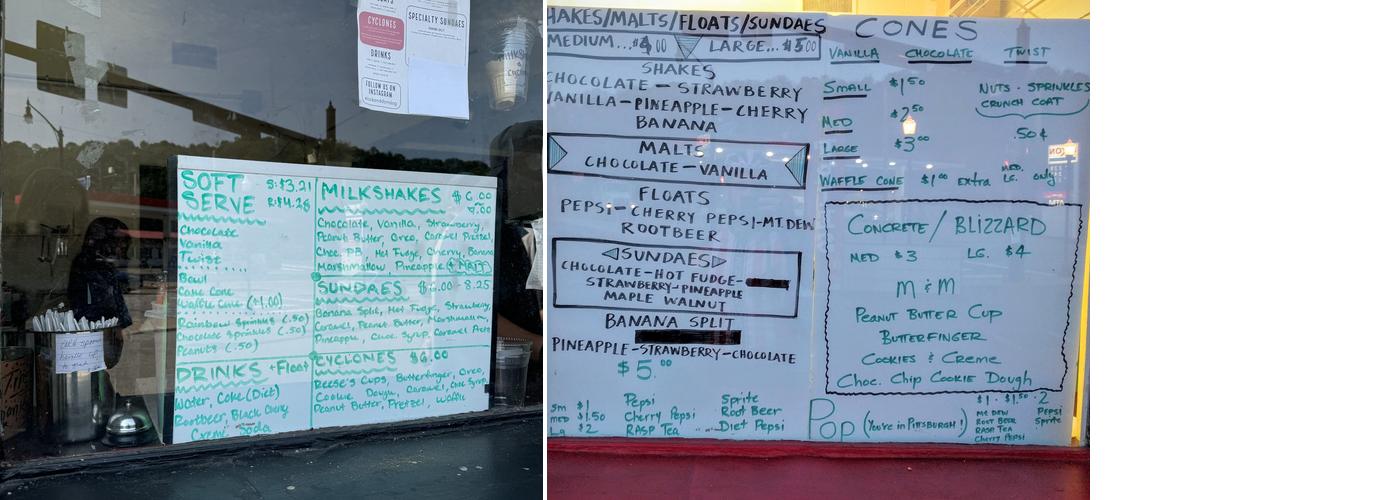 CYCLONES
DRINKS
FOLLOW US ON
INSTAGRAM
SPECIALTY SUNDAES
SOFT S: $3.21
SERVE R: $4.28
Chocolate
Vanilla
Twist
Bowl
Cake Cone
Waffle Cone (+1.00)
Rainbow Sprinkles (.50)
Chocolate Sprinkles (.50)
Peanuts (.50)
DRINKS + Float
Water, Coke (Diet)
Rootbeer, Black Cherry
Creme Soda
MILKSHAKES $6.00
7.00
Chocolate, Vanilla, Strawberry,
Peanut Butter, Oreo, Caramel Pretzel,
Choc. PB, Hot Fudge, Cherry, Banana
Marshmallow Pineapple (+ MALT)
SUNDAES - 8.25
Banana Split, Hot Fudge, Strawberry,
Caramel, Peanut Butter, Marshmallow,
Pineapple, Choc Syrup, Caramel
CYCLONES $6.00
Reese's Cups, Butterfinger, Oreo,
Cookie Dough, Caramel, Choc Syrup
Peanut Butter, Pretzel, Waffle
HAKES/MALTS/FLOATS/SUNDAES
MEDIUM...$4.00 LARGE...$5.00
SHAKES
CHOCOLATE - STRAWBERRY
VANILLA-PINEAPPLE-CHERRY
BANANA
MALTS
CHOCOLATE-VANILLA
FLOATS
PEPSI-CHERRY PEPSI-MT.DEW
ROOTBEER
SUNDAES
CHOCOLATE-HOT FUDGE-
STRAWBERRY-PINEAPPLE
MAPLE WALNUT
BANANA SPLIT
PINEAPPLE-STRAWBERRY-CHOCOLATE
$5.00
Sm $1 Pepsi Sprite
MED $1.50 Cherry Pepsi Root Beer
Lg $2 RASP Tea Diet Pepsi
CONES
VANILLA CHOCOLATE TWIST
SMALL $1.50
MED $2.50
LARGE $3.00
NUTS - SPRINKLES
CRUNCH COAT
.50¢
WAFFLE CONE $1.00 Extra MED. LG. only
CONCRETE/BLIZZARD
MED $3 LG. $4
M & M
PEANUT BUTTER CUP
BUTTERFINGER
COOKIES & Creme
Choc. Chip Cookie Dough
Pop (You're in PITTSBURGH!)
$1 - $1.50 - 2
Mt DEW Pepsi
ROOT BEER Sprite
RASP Tea
Cherry Pepsi